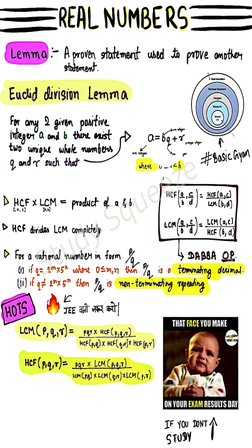 REAL NUMBERS
Lemma :- A proven statement used to prove another
statement.
Euclid division Lemma
For any 2 given positive
integer a and b there exist
two unique whole numbers
q and r such that
a = bq + r
where
#Basic Gyan
HCF x LCM = product of a & b.
HCF divides LCM completely
For a rational number in form p/q
(i) if q = 2^m x 5^n where 0≤m,n then p/q is a terminating decimal
(ii) if q ≠ 2^m x 5^n then p/q is non-terminating repeating
HCF(a/b, c/d) = HCF(a,c)/LCM(b,d)
LCM(a/b, c/d) = LCM(a,c)/HCF(b,d)
DABBA OP
HOTS
JEE वाले जरूर करें!
LCM(p,q,r) = pqr x HCF(p,q,r) / HCF(p,q) x HCF(q,r) x HCF(p,r)
HCF(p,q,r) = pqr x LCM(p,q,r) / LCM(p,q) x LCM(q,r) x LCM(p,r)
THAT FACE YOU MAKE
ON YOUR EXAM RESULTS DAY
IF YOU DON'T
STUDY